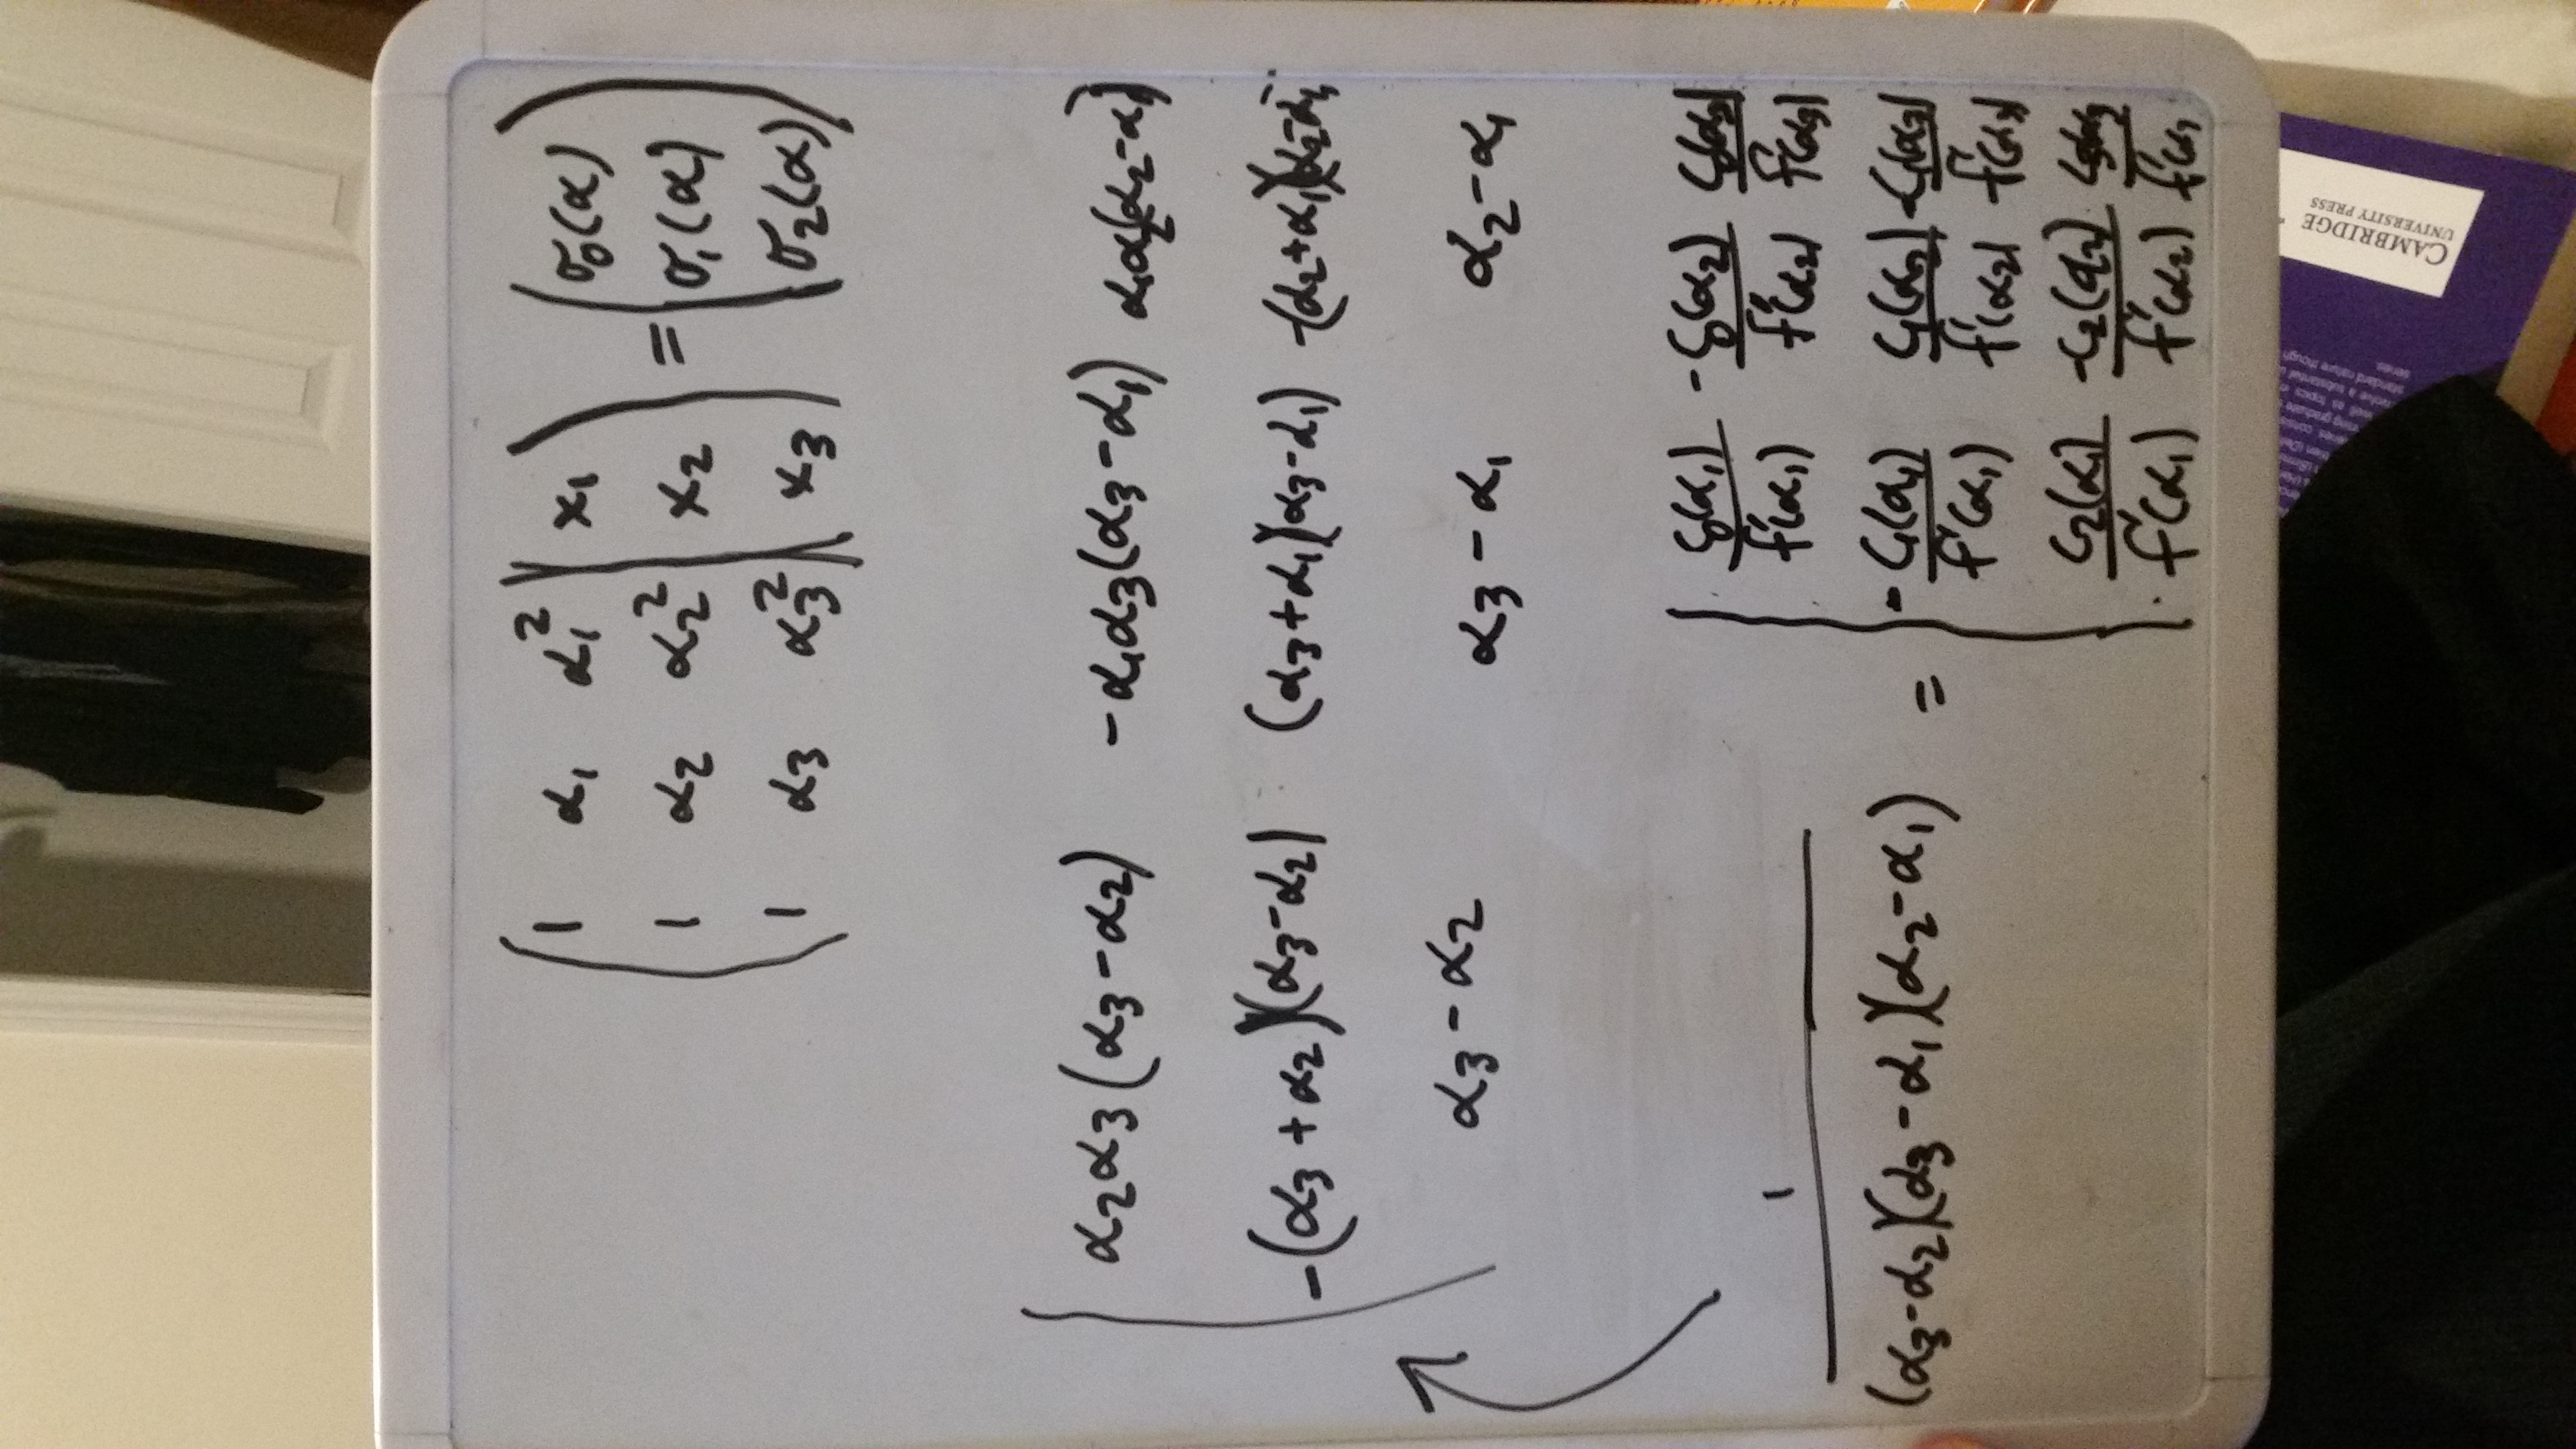 1 α₁ α₁² x₁ = σ₀(α)
1 α₂ α₂² x₂ σ₁(α)
1 α₃ α₃² x₃ σ₂(α)
α₂α₃(α₃-α₂) -α₁α₃(α₃-α₁) α₁α₂(α₂-α₁)
-(α₃+α₂)(α₃-α₂) (α₃+α₁)(α₃-α₁) -(α₂+α₁)(α₂-α₁
α₃-α₂ α₃-α₁ α₂-α₁
1/((α₃-α₂)(α₃-α₁)(α₂-α₁)) =
c₀(α₁)/f'(α₁) -c₀(α₂)/f'(α₂) c₀(α₃)/f'(α₃)
-c₁(α₁)/f'(α₁) c₁(α₂)/f'(α₂) -c₁(α₃)/f'(α₃)
c₂(α₁)/f'(α₁) -c₂(α₂)/f'(α₂)
CAMBRIDGE
UNIVERSITY PRESS